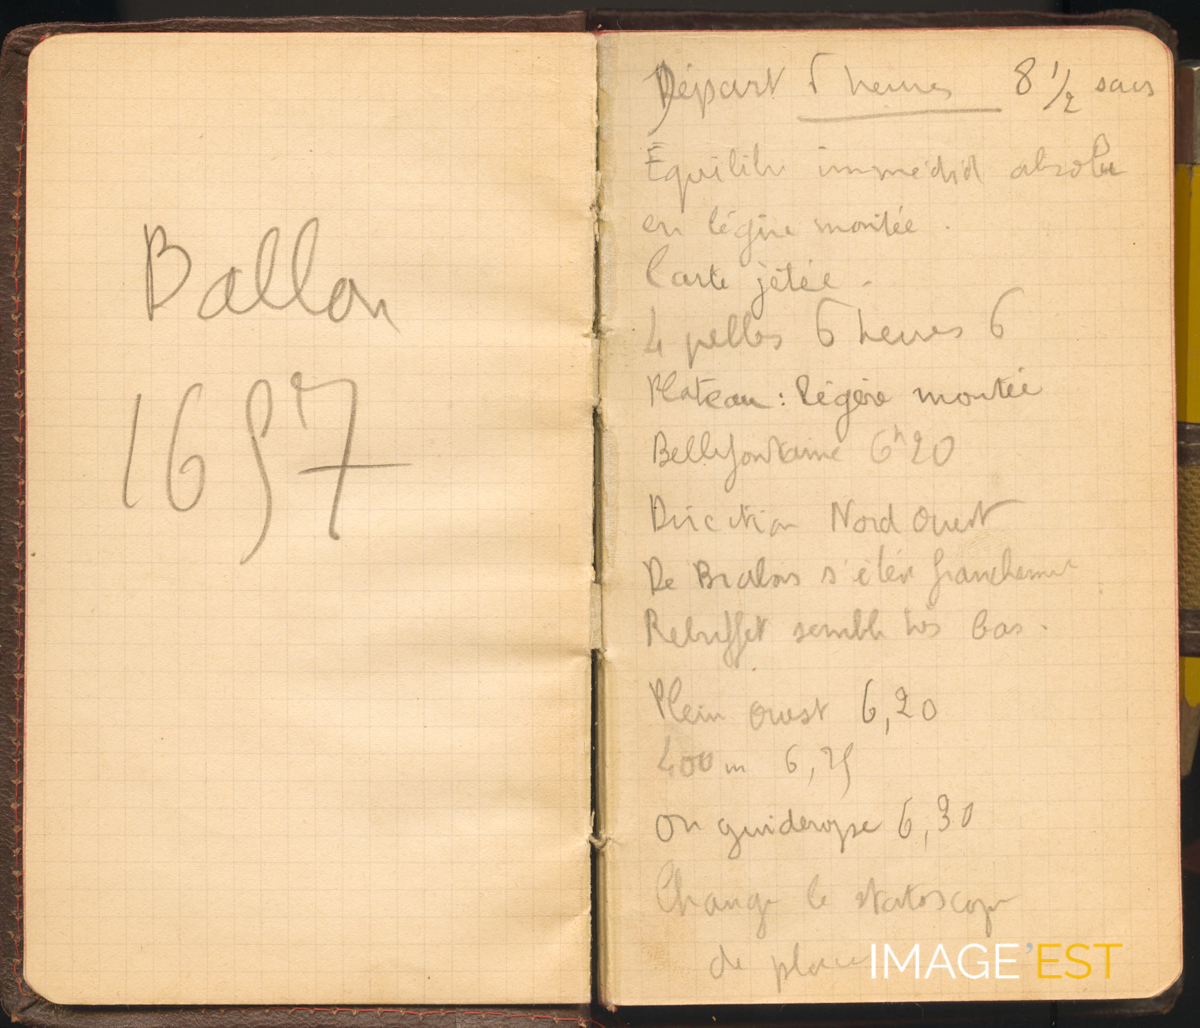 Ballon
1657
Départ 6 heures 8 1/2 sacs
Equilibre immédiat absolu
en légère montée.
Carte jetée.
4 pelles 6 heures 6
Plateau : légère montée
Bellefontaine 6h20
Direction Nord Ouest
De Bralons s'élève franchement
semble très bas.
Plein ouest 6,20
400 m 6,25
on guiderope 6,30
Change le statoscope
de place
IMAGE'EST